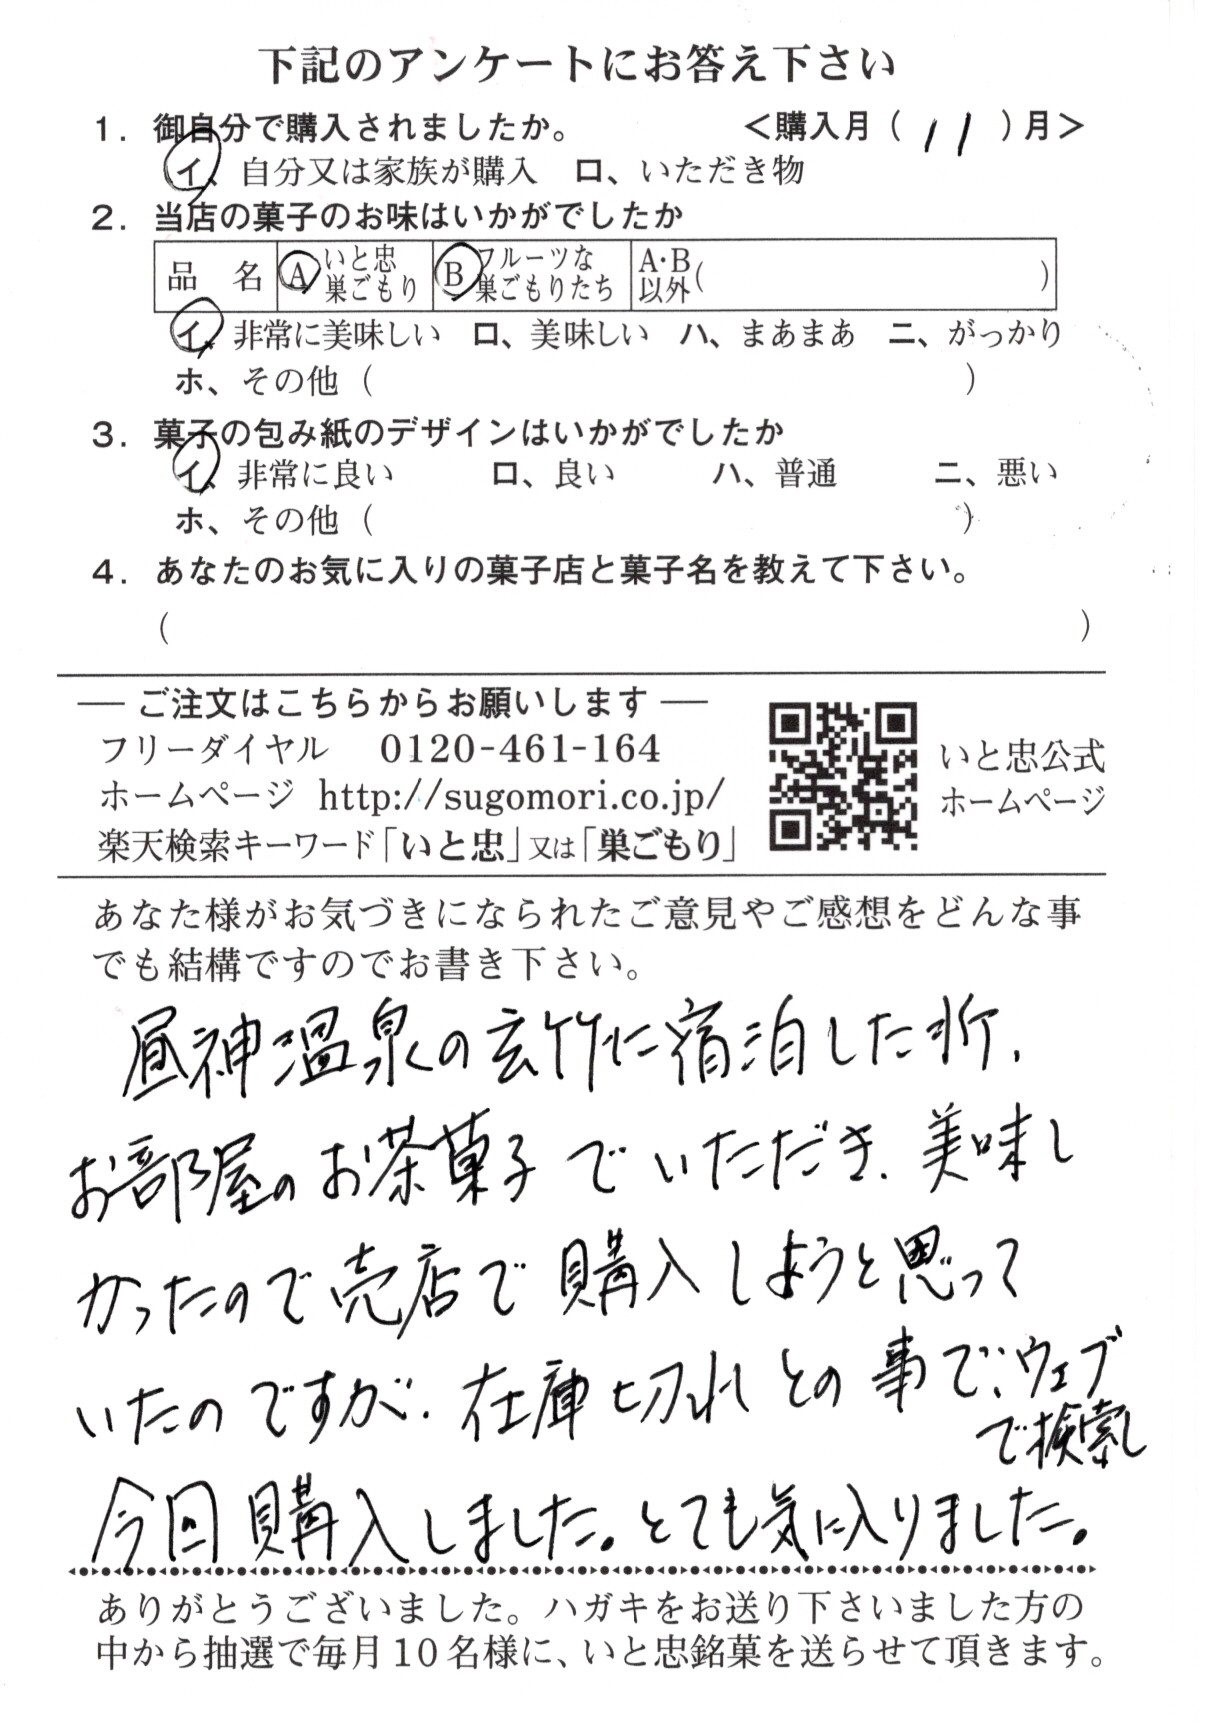 下記のアンケートにお答え下さい
1. 御自分で購入されましたか。 <購入月( 11 )月>
イ、自分又は家族が購入 ロ、いただき物
2. 当店の菓子のお味はいかがでしたか
品 名 A いと忠 巣ごもり B フルーツな 巣ごもりたち A・B 以外( )
イ、非常に美味しい ロ、美味しい ハ、まあまあ ニ、がっかり
ホ、その他( )
3. 菓子の包み紙のデザインはいかがでしたか
イ、非常に良い ロ、良い ハ、普通 ニ、悪い
ホ、その他( )
4. あなたのお気に入りの菓子店と菓子名を教えて下さい。
( )
— ご注文はこちらからお願いします —
フリーダイヤル 0120-461-164
ホームページ http://sugomori.co.jp/
楽天検索キーワード「いと忠」又は「巣ごもり」
いと忠公式
ホームページ
あなた様がお気づきになられたご意見やご感想をどんな事
でも結構ですのでお書き下さい。
昼神温泉の玄竹に宿泊した折、
お部屋のお茶菓子でいただき、美味し
かったので売店で購入しようと思って
いたのですが、在庫切れとの事で、ウェブ
で検索し
今回購入しました。とても気に入りました。
ありがとうございました。ハガキをお送り下さいました方の
中から抽選で毎月10名様に、いと忠銘菓を送らせて頂きます。